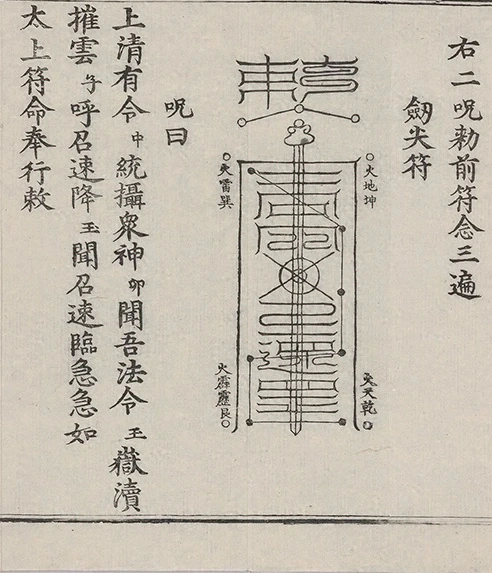 右二呪勑前符念三遍
劒尖符
火地坤
火天乾
火雷巽
火霹靂艮
呪曰
上清有令中統攝眾神卯聞吾法令玉嶽瀆
摧雲子呼召速降玉聞召速臨急急如
太上符命奉行敕